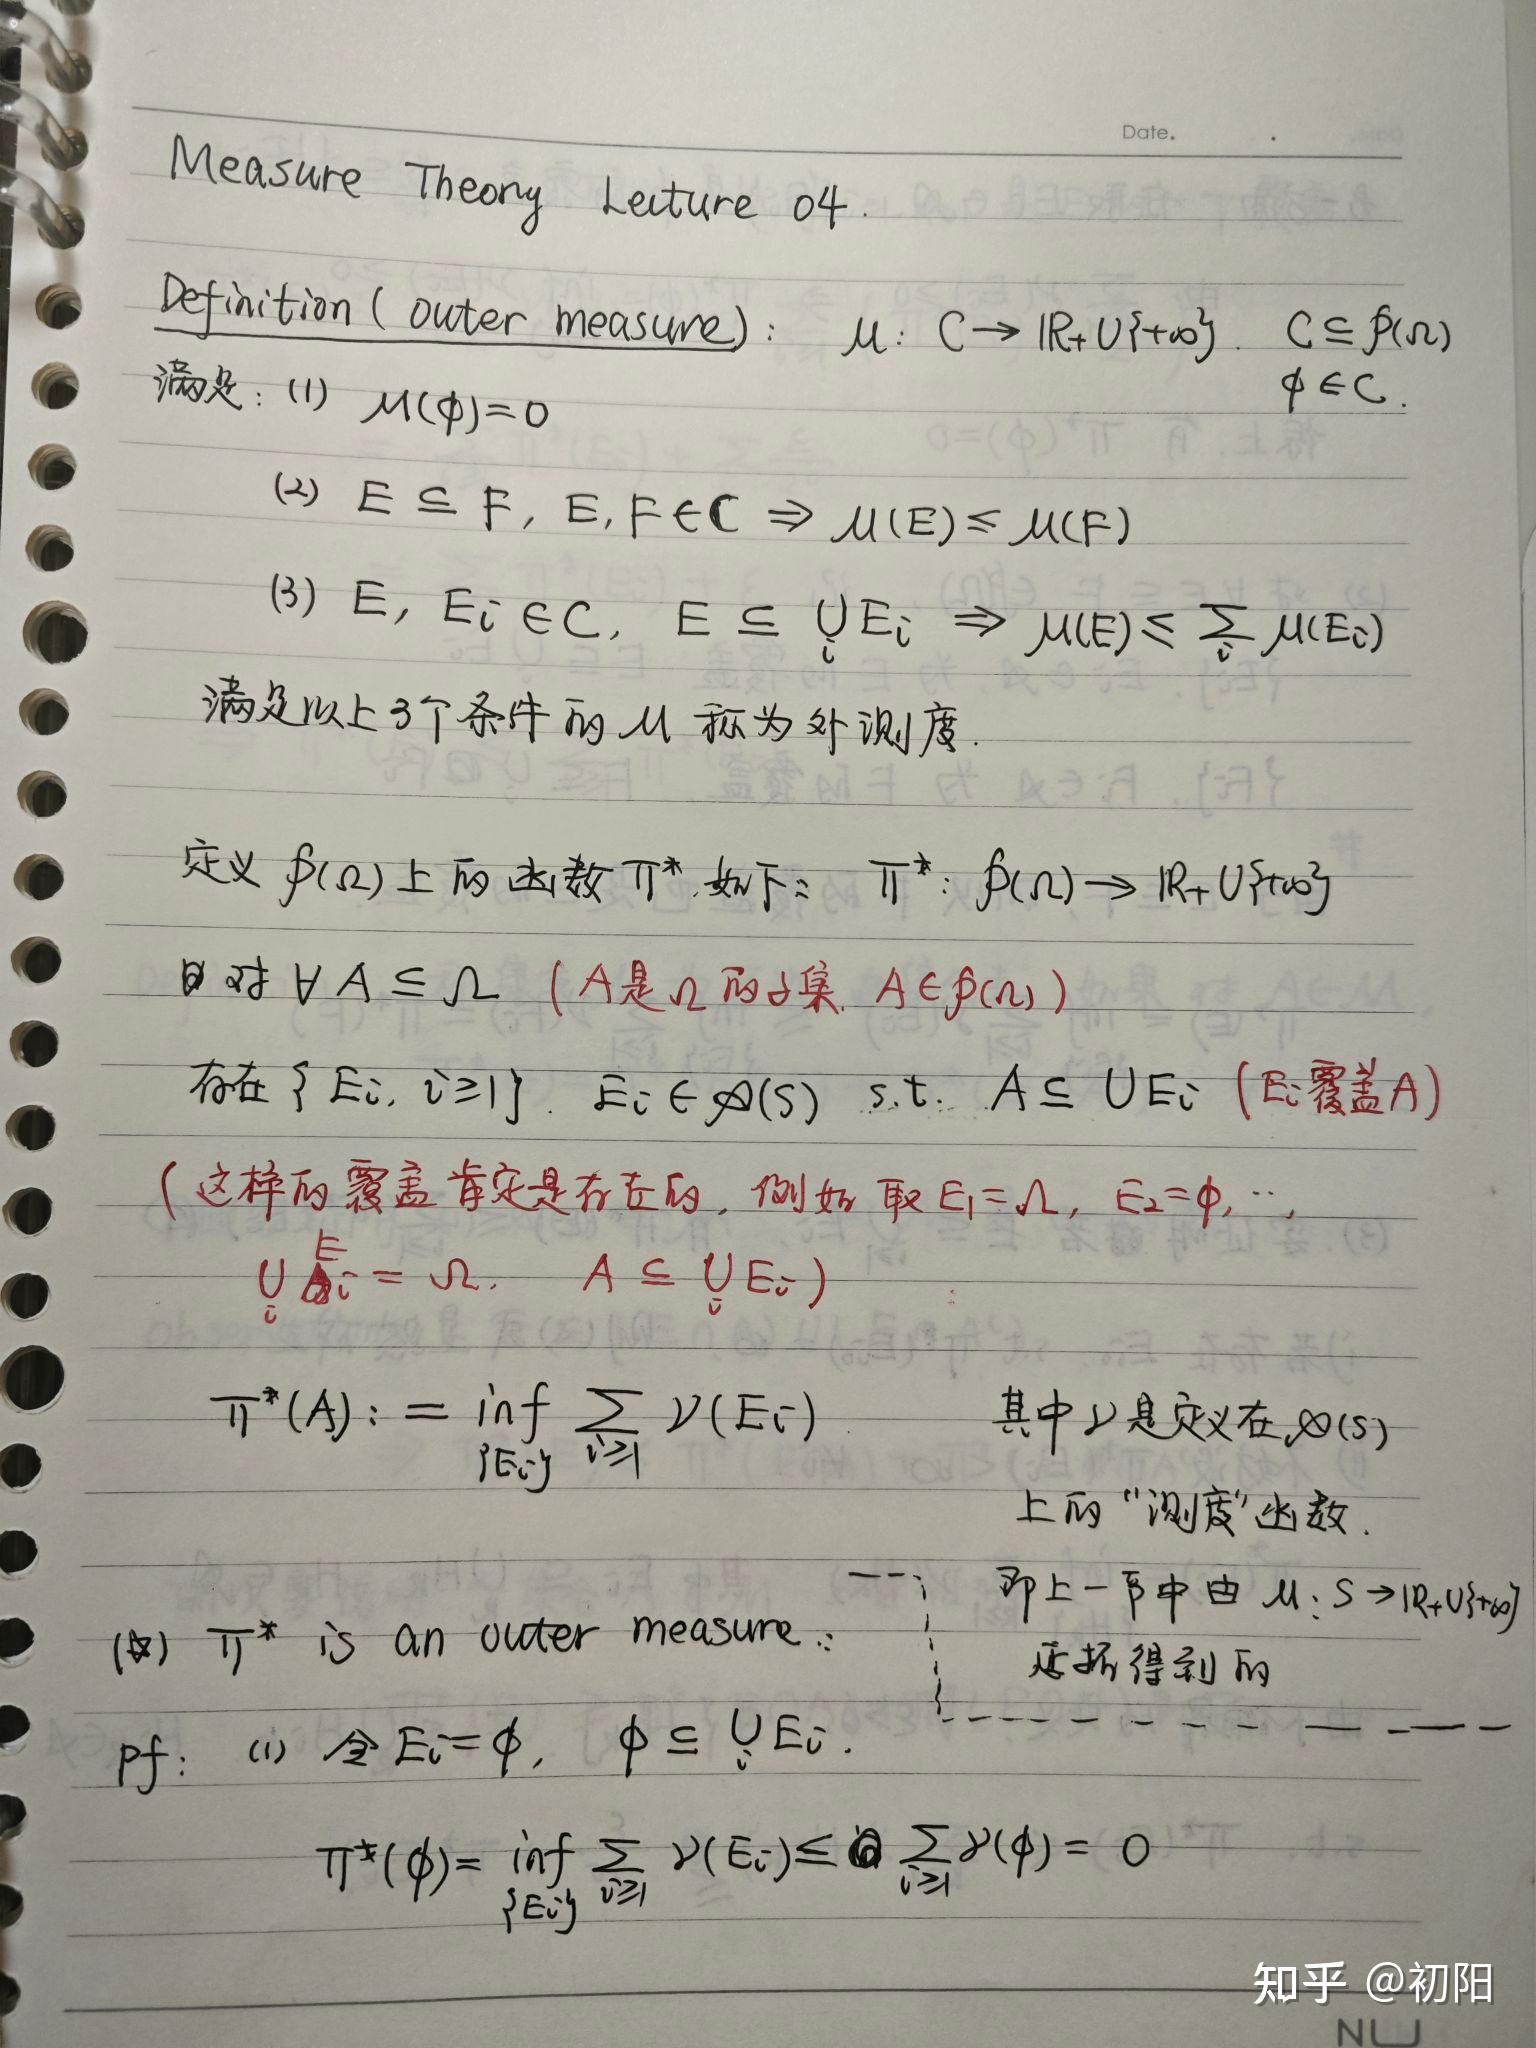 Date.
Measure Theory Lecture 04.
Definition (outer measure): μ: C→ℝ₊∪{+∞}. C⊆𝒫(Ω)
ϕ∈C.
满足: (1) μ(ϕ)=0
(2) E⊆F, E,F∈C ⇒ μ(E)≤μ(F)
(3) E, Ei∈C, E⊆⋃_i Ei ⇒ μ(E)≤∑_i μ(Ei)
满足以上3个条件的μ称为外测度.
定义𝒫(Ω)上的函数π*.如下: π*: 𝒫(Ω)→ℝ₊∪{+∞}
对∀A⊆Ω (A是Ω的子集. A∈𝒫(Ω))
存在{Ei, i≥1}. Ei∈𝒜(S) s.t. A⊆∪Ei (Ei覆盖A)
(这样的覆盖肯定是存在的, 例如取E₁=Ω, E₂=ϕ,…,
⋃_i Ei=Ω. A⊆⋃_i Ei)
π*(A):=inf_{Ei} ∑_{i≥1} ν(Ei)
其中ν是定义在𝒜(S)
上的“测度”函数.
即上一节中由μ:S→ℝ₊∪{+∞}
延拓得到的
(☆) π* is an outer measure.:
pf: (1) 令Ei=ϕ, ϕ⊆⋃_i Ei.
π*(ϕ)=inf_{Ei} ∑_{i≥1} ν(Ei)≤ ∑_{i≥1} ν(ϕ)=0
知乎 @初阳